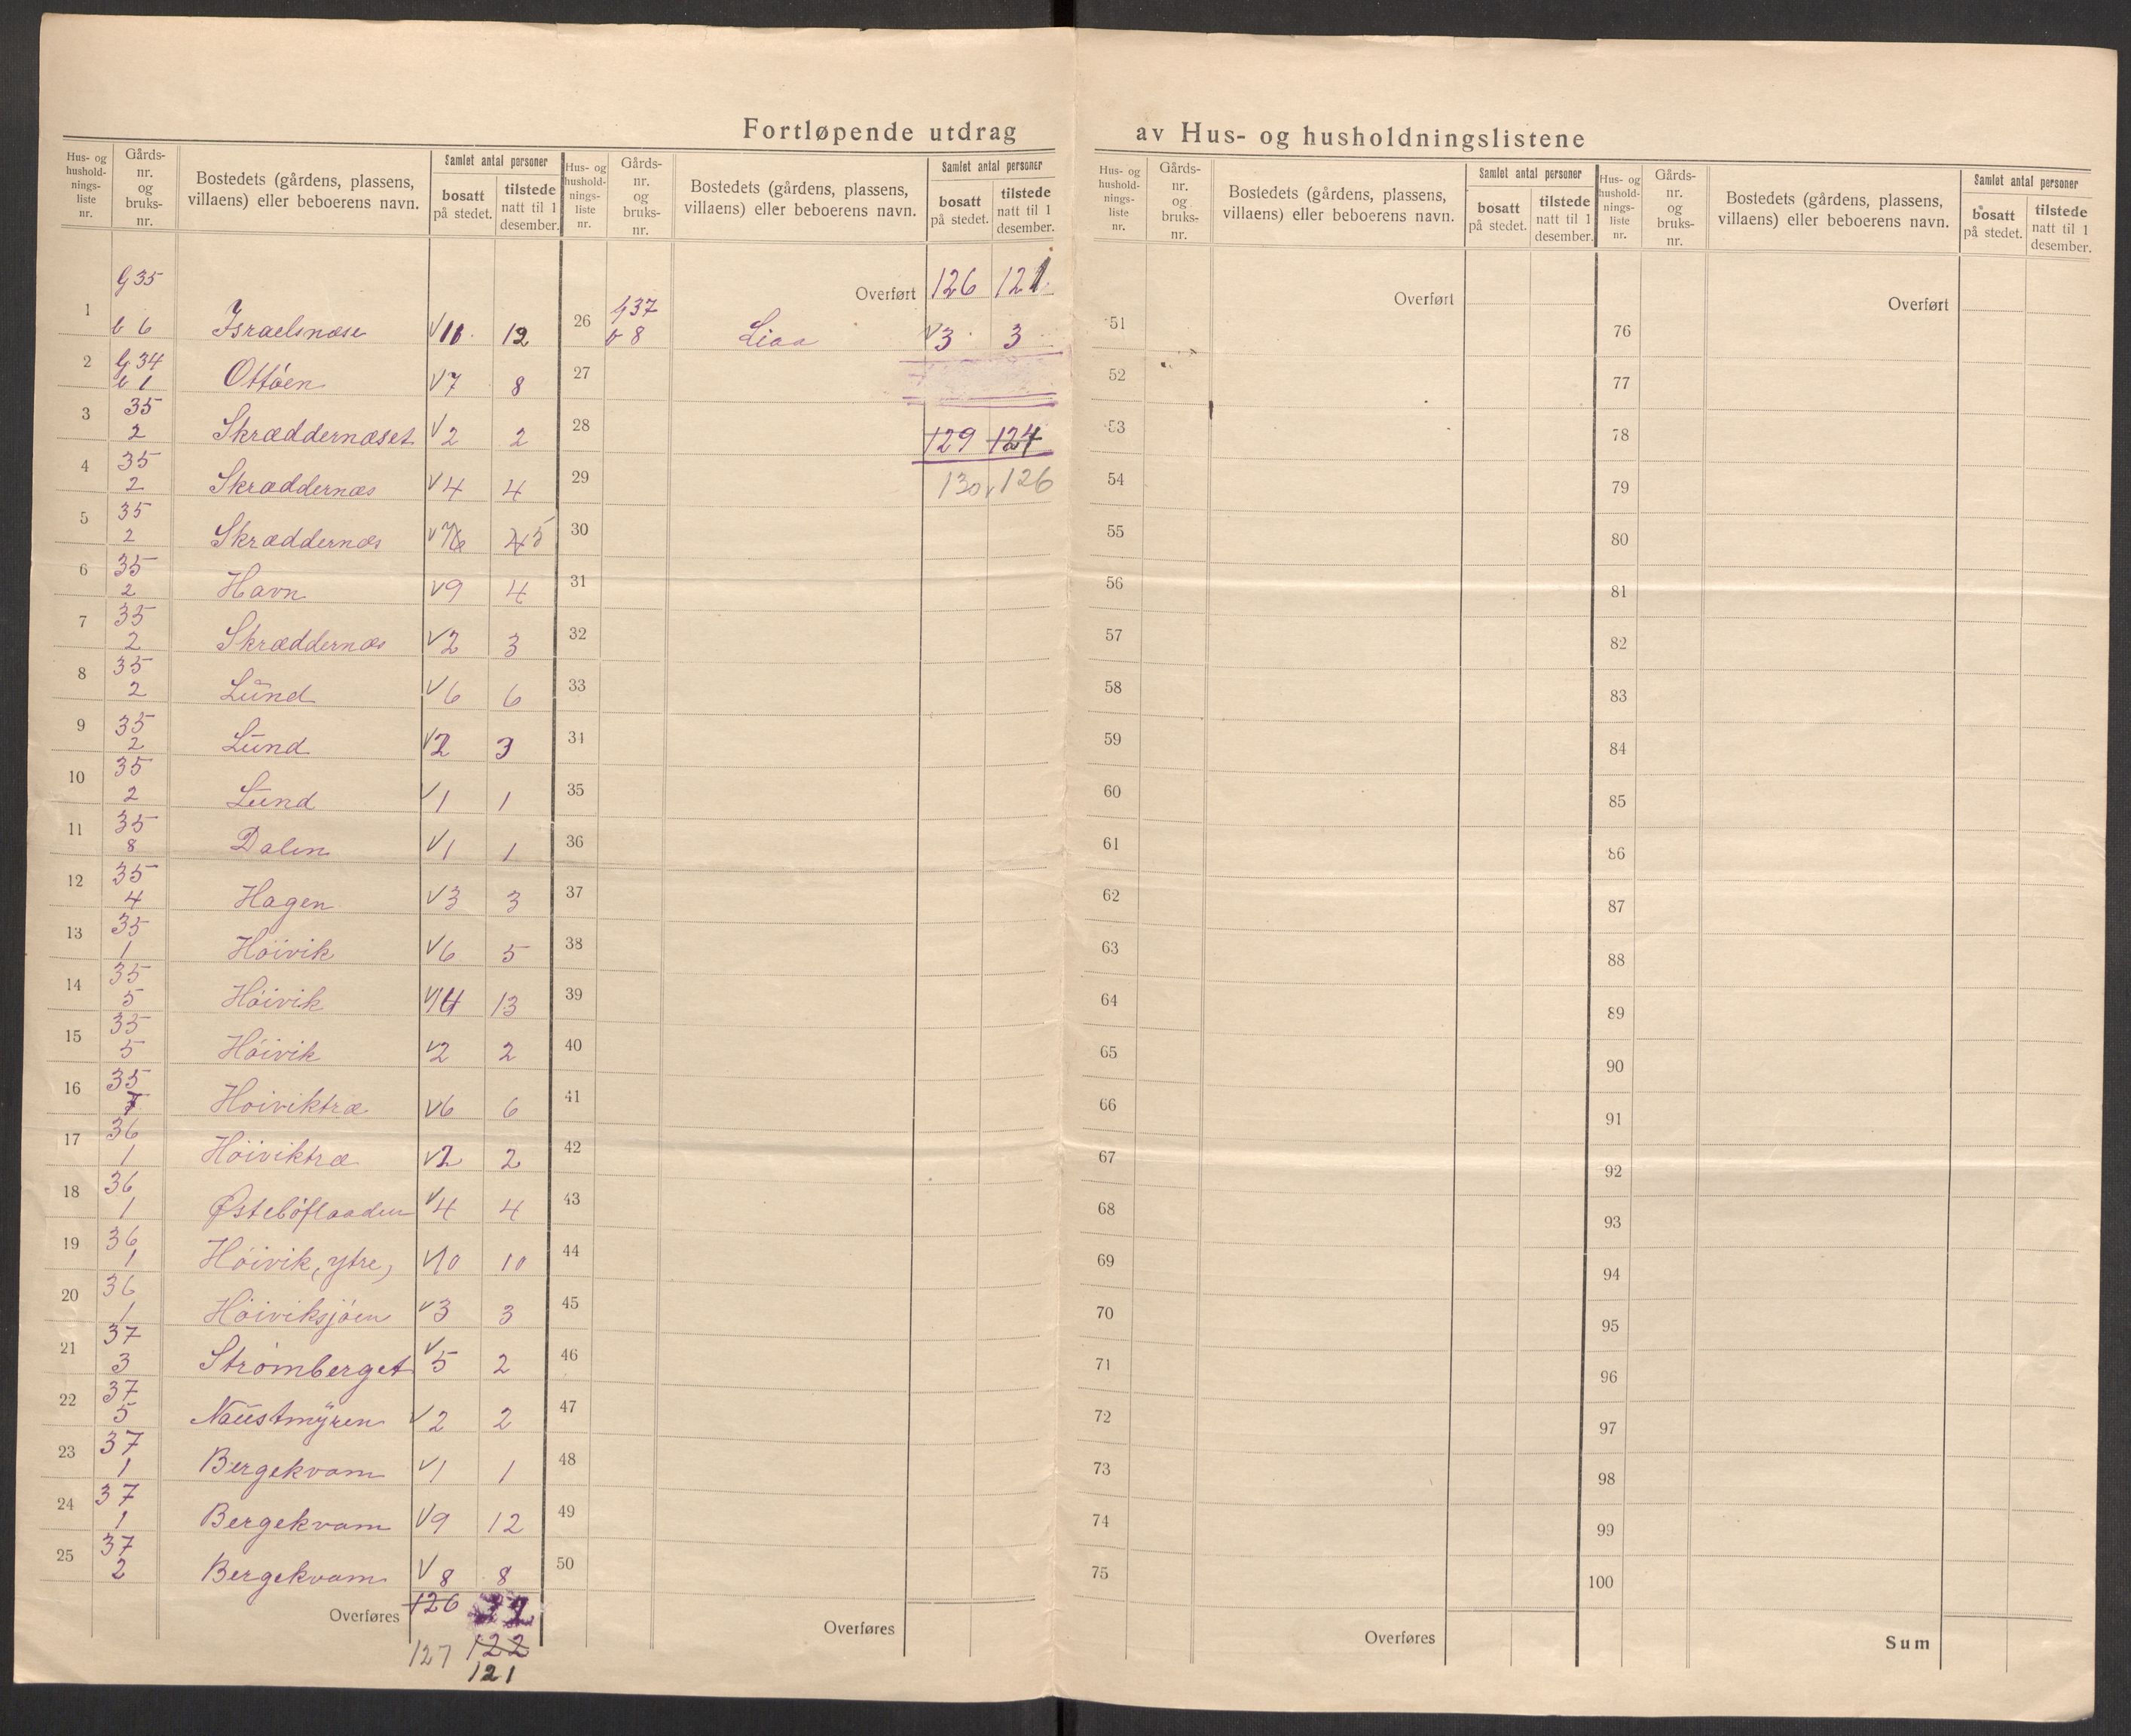 Fortløpende utdrag av Hus- og husholdningslistene
Hus- og hushold-nings-liste nr.
Gårds-nr. og bruks-nr.
Bostedets (gårdens, plassens, villaens) eller beboerens navn.
Samlet antal personer
bosatt på stedet.
tilstede natt til 1 desember.
Hus- og hushold-nings-liste nr.
Gårds-nr. og bruks-nr.
Bostedets (gårdens, plassens, villaens) eller beboerens navn.
Samlet antal personer
bosatt på stedet.
tilstede natt til 1 desember.
Hus- og hushold-nings-liste nr.
Gårds-nr. og bruks-nr.
Bostedets (gårdens, plassens, villaens) eller beboerens navn.
Samlet antal personer
bosatt på stedet.
tilstede natt til 1 desember.
Hus- og hushold-nings-liste nr.
Gårds-nr. og bruks-nr.
Bostedets (gårdens, plassens, villaens) eller beboerens navn.
Samlet antal personer
bosatt på stedet.
tilstede natt til 1 desember.
1 G 35 b 6 Israelsnæse V 12
2 G 34 b 1 Ottöen V 7 8
3 35 2 Skræddernæset V 2 2
4 35 2 Skræddernæs V 4 4
5 35 2 Skræddernæs V 5
6 35 2 Havn V 9 4
7 35 2 Skræddernæs V 2 3
8 35 2 Lund V 6 6
9 35 2 Lund V 2 3
10 35 2 Lund V 1 1
11 35 8 Dalen V 1 1
12 35 4 Hagen V 3 3
13 35 1 Höivik V 6 5
14 35 5 Höivik V 14 13
15 35 5 Höivik V 2 2
16 35 7 Hoiviktræ V 6 6
17 36 1 Höiviktræ V 2 2
18 36 1 Østeböflaaden V 4 4
19 36 1 Höivik, ytre, V 10 10
20 36 1 Höiviksjöen V 3 3
21 37 3 Strömberget V 5 2
22 37 5 Naustmyren V 2 2
23 37 1 Bergekvam V 1 1
24 37 1 Bergekvam V 9 12
25 37 2 Bergekvam V 8 8
Overføres 126
127 122
121
Overført 126 121
26 G 37 b 8 Liaa V 3 3
27
28 129 124
29 130 V 126
30
31
32
33
34
35
36
37
38
39
40
41
42
43
44
45
46
47
48
49
50
Overføres
Overført
51
52
53
54
55
56
57
58
59
60
61
62
63
64
65
66
67
68
69
70
71
72
73
74
75
Overføres
Overført
76
77
78
79
80
81
82
83
84
85
86
87
88
89
90
91
92
93
94
95
96
97
98
99
100
Sum